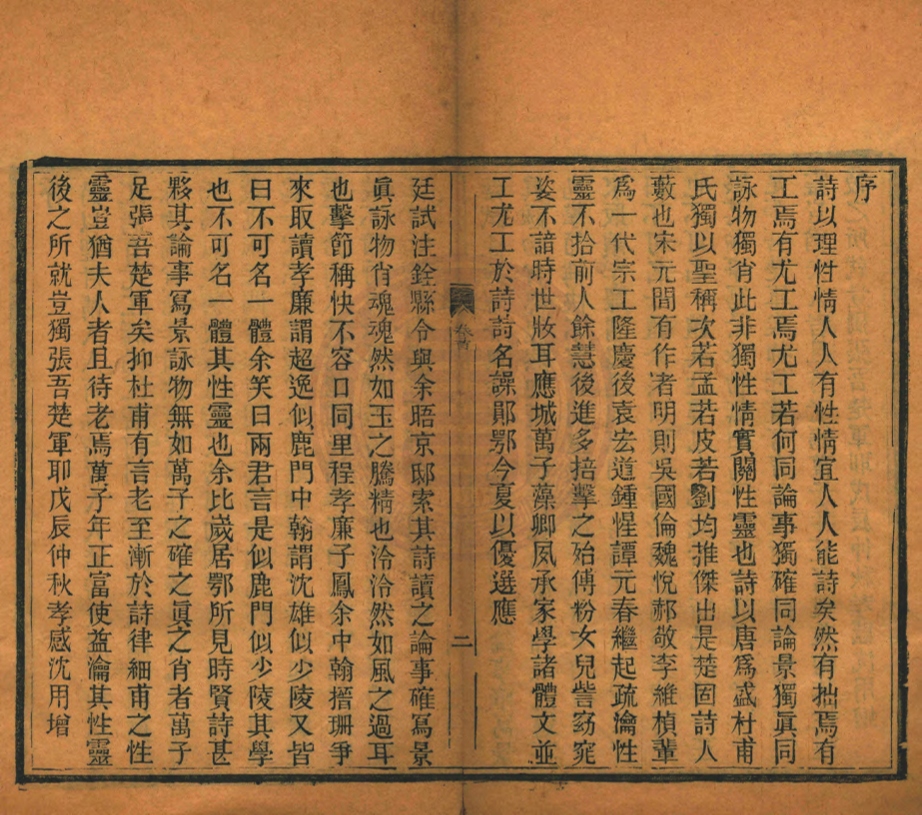 序
詩以理性情人人有性情宜人人能詩矣然有拙焉有
工焉有尤工焉尤工若何同論事獨確同論景獨眞同
詠物獨肖此非獨性情實關性靈也詩以唐爲盛杜甫
氏獨以聖稱次若孟若皮若劉均推傑出是楚固詩人
藪也宋元閒有作者明則吳國倫魏悅郝敬李維楨輩
爲一代宗工隆慶後袁宏道鍾惺譚元春繼起疏瀹性
靈不拾前人餘慧後進多掊擊之殆傅粉女兒訾窈窕
姿不諳時世妝耳應城萬子藻卿夙承家學諸體文並
工尤工於詩詩名譟鄖鄂今夏以優選應
卷首
二
廷試注銓縣令與余晤京邸索其詩讀之論事確寫景
眞詠物肖魂魂然如玉之騰精也泠泠然如風之過耳
也擊節稱快不容口同里程孝廉子鳳余中翰搢珊爭
來取讀孝廉謂超逸似鹿門中翰謂沈雄似少陵又皆
曰不可名一體余笑曰兩君言是似鹿門似少陵其學
也不可名一體其性靈也余比歲居鄂所見時賢詩甚
夥其論事寫景詠物無如萬子之確之眞之肖者萬子
足張吾楚軍矣抑杜甫有言老至漸於詩律細甫之性
靈豈猶夫人者且待老焉萬子年正富使益瀹其性靈
後之所就豈獨張吾楚軍耶戊辰仲秋孝感沈用增